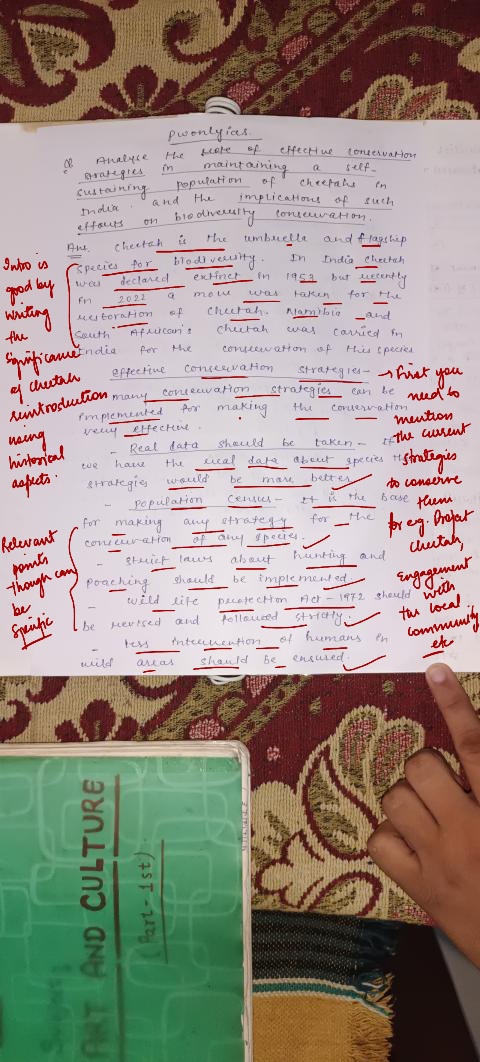 Pwonlyias.
Q Analyse the role of effective conservation
strategies in maintaining a self-
sustaining population of cheetahs in
India. and the implications of such
efforts on biodiversity conservation.
Ans. Cheetah is the umbrella and flagship
species for biodiversity. In India cheetah
was declared extinct in 1952 but recently
in 2022 a move was taken for the
restoration of cheetah. Namibia and
South African's cheetah was carried in
India for the conservation of this species
effective conservation strategies -
many conservation strategies can be
implemented for making the conservation
very effective.
- Real data should be taken - If
we have the real data about species the
strategies would be more better.
- Population Census - It is the base
for making any strategy for the
conservation of any species.
- strict laws about hunting and
poaching should be implemented.
- wild life protection Act - 1972 should
be revised and followed strictly.
- less intervention of humans in
wild areas should be ensured.
Intro is
good by
writing
the
significance
of cheetah
reintroduction
using
historical
aspects.
Relevant
points
though can
be
specific
First you
need to
mention
the current
strategies
to conserve
them
for eg. Project
cheetah,
Engagement
with
the local
community
etc
ART AND CULTURE
(Part-1st).